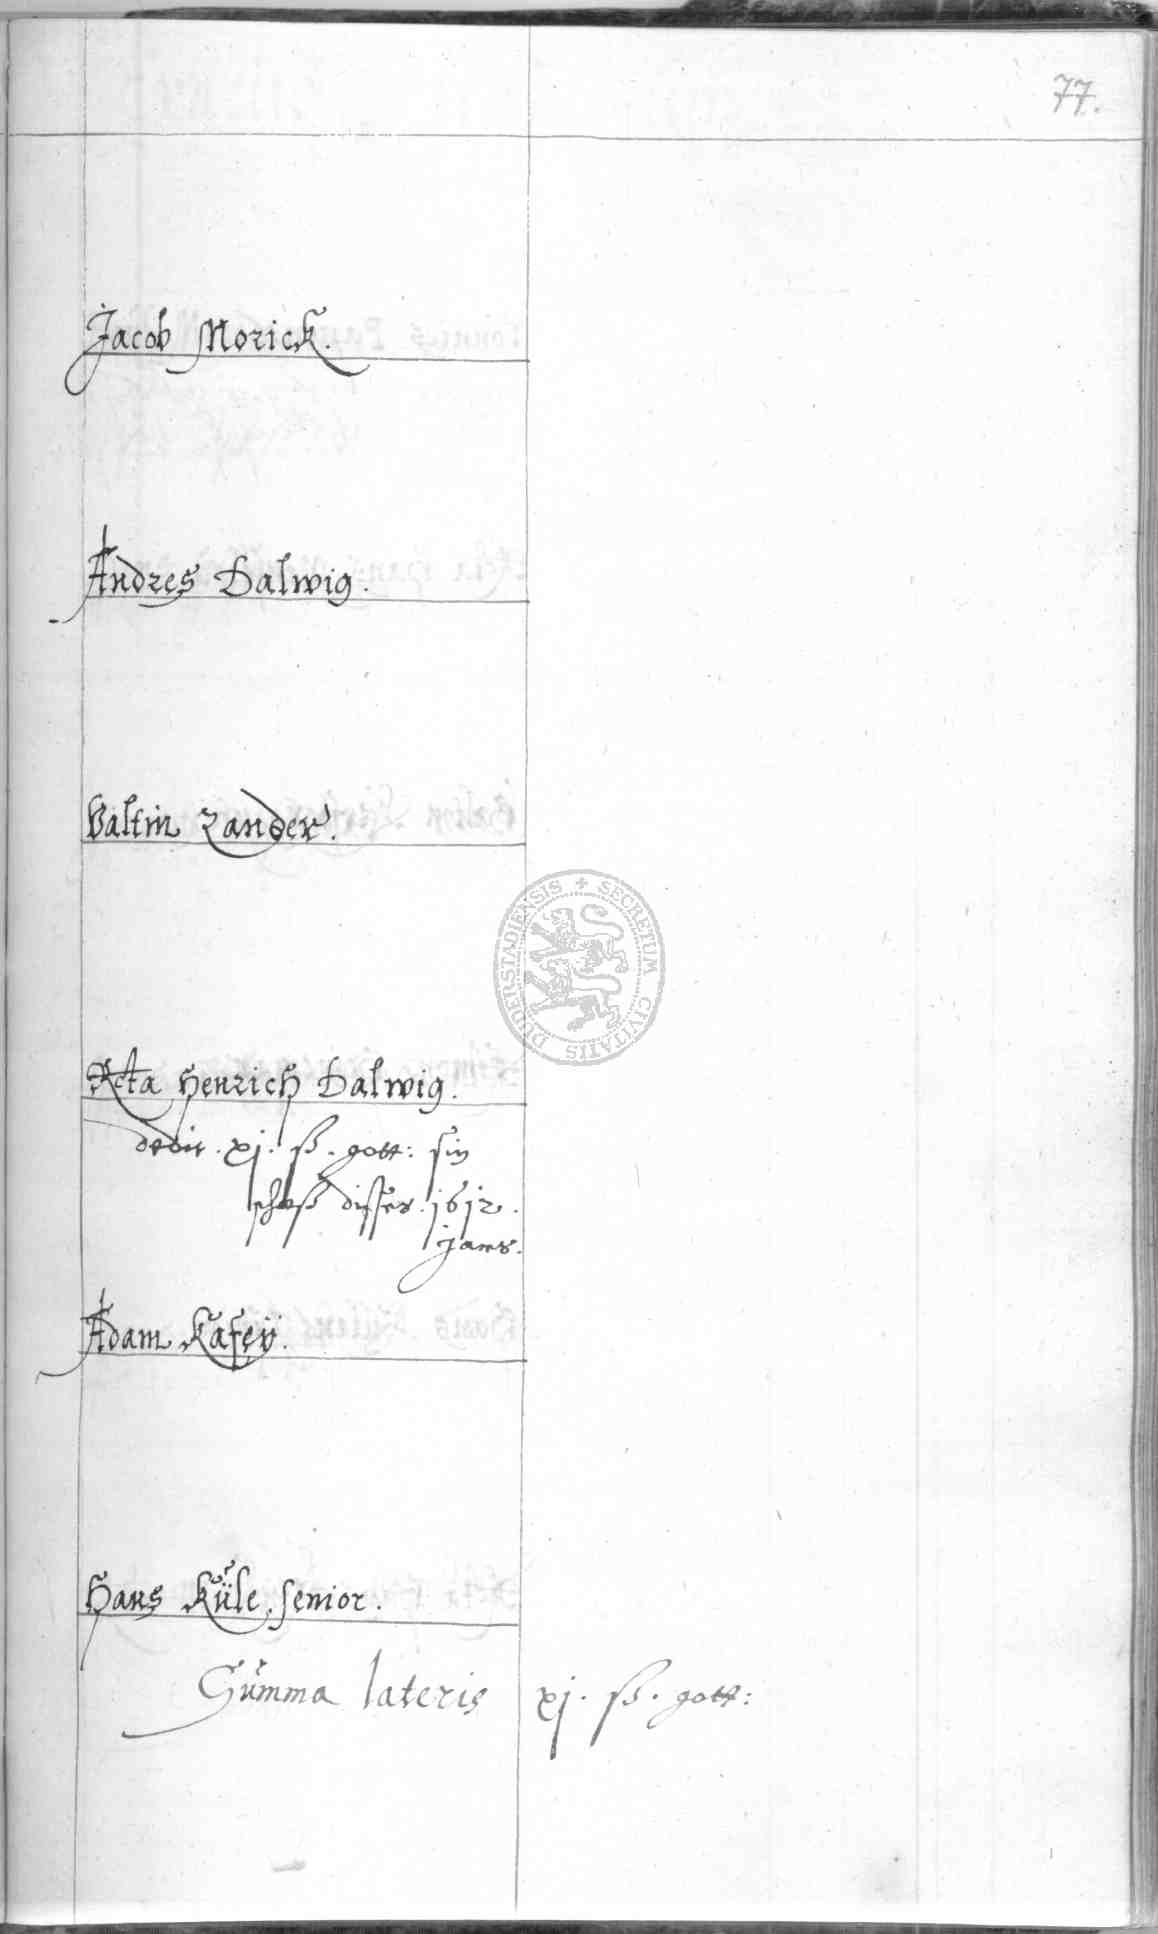 77.
Jacob Morick.
Andres Dalwig.
Valtin Zander.
DUDERSTADIENSIS + SECRETUM CIVITATIS
Rcta Henrich Dalwig.
dedit. xj. ß. gott: sin
schoß disses. 1612.
jars.
Adam
Hans Küle senior.
Summa lateris xj. ß. gott: